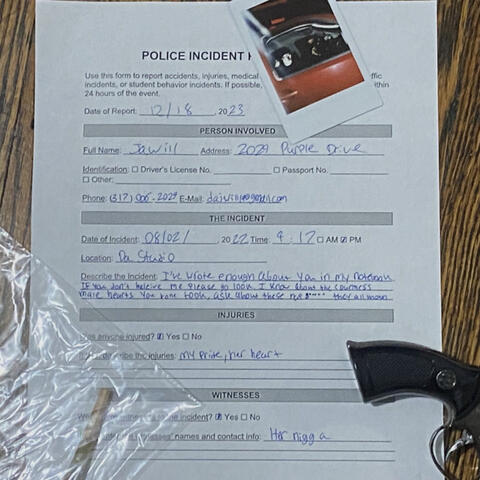 POLICE INCIDENT
Use this form to report accidents, injuries, medical
incidents, or student behavior incidents. If possible,
24 hours of the event.
Date of Report: 12/18, 2023
PERSON INVOLVED
Full Name: Jawill Address: 2029 Purple Drive
Identification: ☐ Driver's License No. ☐ Passport No.
☐ Other:
Phone: (317) 006-2029 E-Mail:
THE INCIDENT
Date of Incident: 08/02/ 2022 Time: 9:17 ☐ AM ☑ PM
Location: Da Studio
Describe the Incident: I've wrote enough about you in my notebook
If you don't beleive me please go look, I know about the
hearts you took, ask about these they all
INJURIES
anyone injured? ☑ Yes ☐ No
describe the injuries: my pride, her heart
WITNESSES
to the incident? ☑ Yes ☐ No
names and contact info: Her nigga